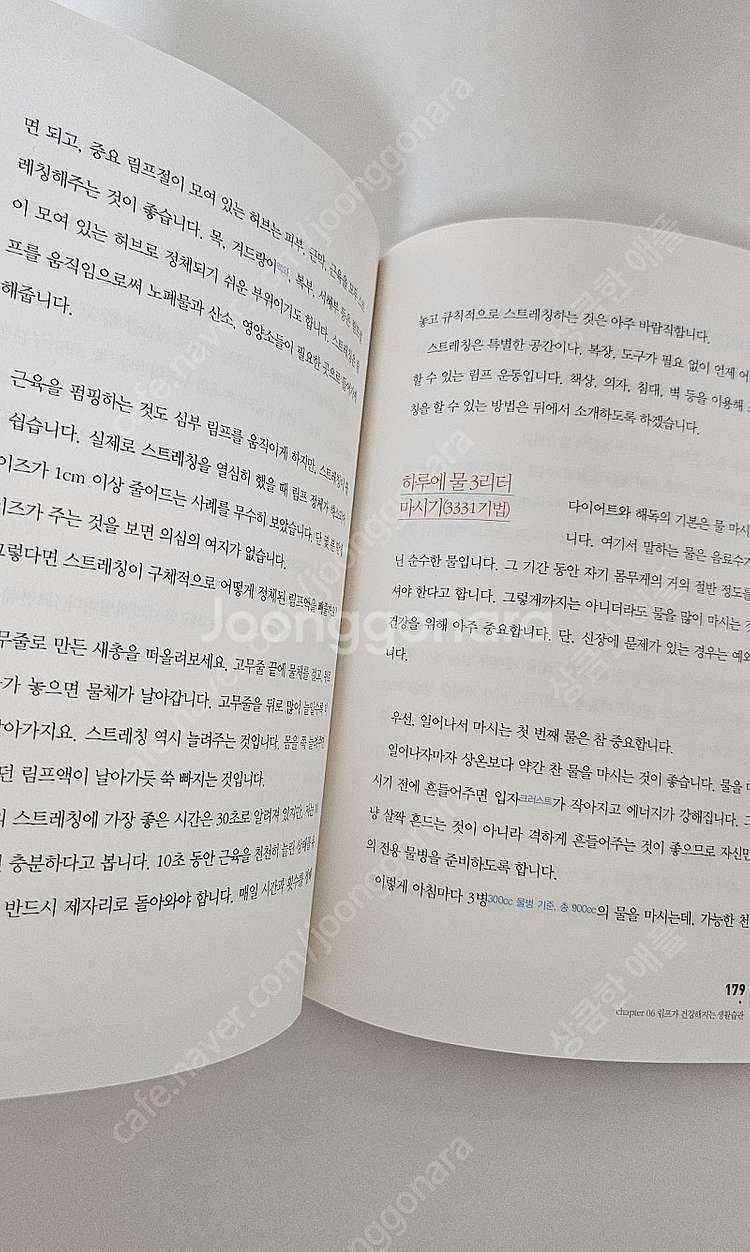 면 되고, 중요 림프절이 모여 있는 허브는 피부, 근막, 근육을 모두 스트
레칭해주는 것이 좋습니다. 목, 겨드랑이, 복부, 서혜부 등은 림프절
이 모여 있는 허브로 정체되기 쉬운 부위이기도 합니다. 스트레칭은 림
프를 움직임으로써 노폐물과 산소, 영양소들이 필요한 곳으로
해줍니다.
근육을 펌핑하는 것도 심부 림프를 움직이게 하지만, 스트레칭이
쉽습니다. 실제로 스트레칭을 열심히 했을 때 림프 정체가
이즈가 1cm 이상 줄어드는 사례를 무수히 보았습니다. 단 몇 분 만에
이즈가 주는 것을 보면 의심의 여지가 없습니다.
그렇다면 스트레칭이 구체적으로 어떻게 정체된 림프액을
무줄로 만든 새총을 떠올려보세요. 고무줄 끝에 물체를 걸고, 뒤로
가 놓으면 물체가 날아갑니다. 고무줄을 뒤로 많이 늘일수록
아가지요. 스트레칭 역시 늘려주는 것입니다. 몸을 쭉
던 림프액이 날아가듯 쑥 빠지는 것입니다.
의 스트레칭에 가장 좋은 시간은 30초로 알려져 있지만, 저는
충분하다고 봅니다. 10초 동안 근육을 천천히 늘린 상태를
반드시 제자리로 돌아와야 합니다. 매일 시간과 횟수를
놓고 규칙적으로 스트레칭하는 것은 아주 바람직합니다.
스트레칭은 특별한 공간이나, 복장, 도구가 필요 없이 언제 어
할 수 있는 림프 운동입니다. 책상, 의자, 침대, 벽 등을 이용해 스
칭을 할 수 있는 방법은 뒤에서 소개하도록 하겠습니다.
하루에 물 3리터
마시기(3331기법)
다이어트와 해독의 기본은 물 마시
니다. 여기서 말하는 물은 음료수가
닌 순수한 물입니다. 그 기간 동안 자기 몸무게의 거의 절반 정도를
셔야 한다고 합니다. 그렇게까지는 아니더라도 물을 많이 마시는 것
건강을 위해 아주 중요합니다. 단, 신장에 문제가 있는 경우는 예외
니다.
우선, 일어나서 마시는 첫 번째 물은 참 중요합니다.
일어나자마자 상온보다 약간 찬 물을 마시는 것이 좋습니다. 물을 마
시기 전에 흔들어주면 입자크러스트가 작아지고 에너지가 강해집니다. 그
냥 살짝 흔드는 것이 아니라 격하게 흔들어주는 것이 좋으므로 자신만
의 전용 물병을 준비하도록 합니다.
이렇게 아침마다 3병300cc 물병 기준, 총 900cc의 물을 마시는데, 가능한 천
179
chapter 06 림프가 건강해지는 생활습관
Joonggonara
cafe.naver.com/joonggonara
상큼한 애플